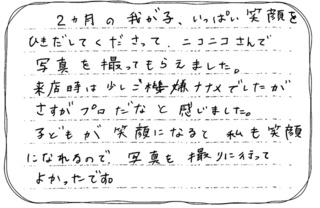 2ヵ月の我が子、いっぱい笑顔を
ひきだしてくださって、ニコニコさんで
写真を撮ってもらえました。
来店時は少しご機嫌ナナメでしたが
さすがプロだなと感じました。
子どもが笑顔になると私も笑顔
になれるので、写真を撮りに行って
よかったです。